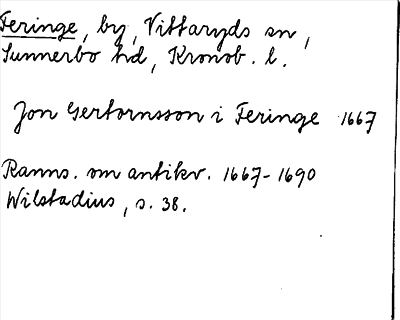 Feringe, by, Vittaryds sn,
Sunnerbo hd, Kronob. l.
Jon Gertornsson i Feringe 1667
Ranns. om antikv. 1667-1690
Wilstadius, s. 38.